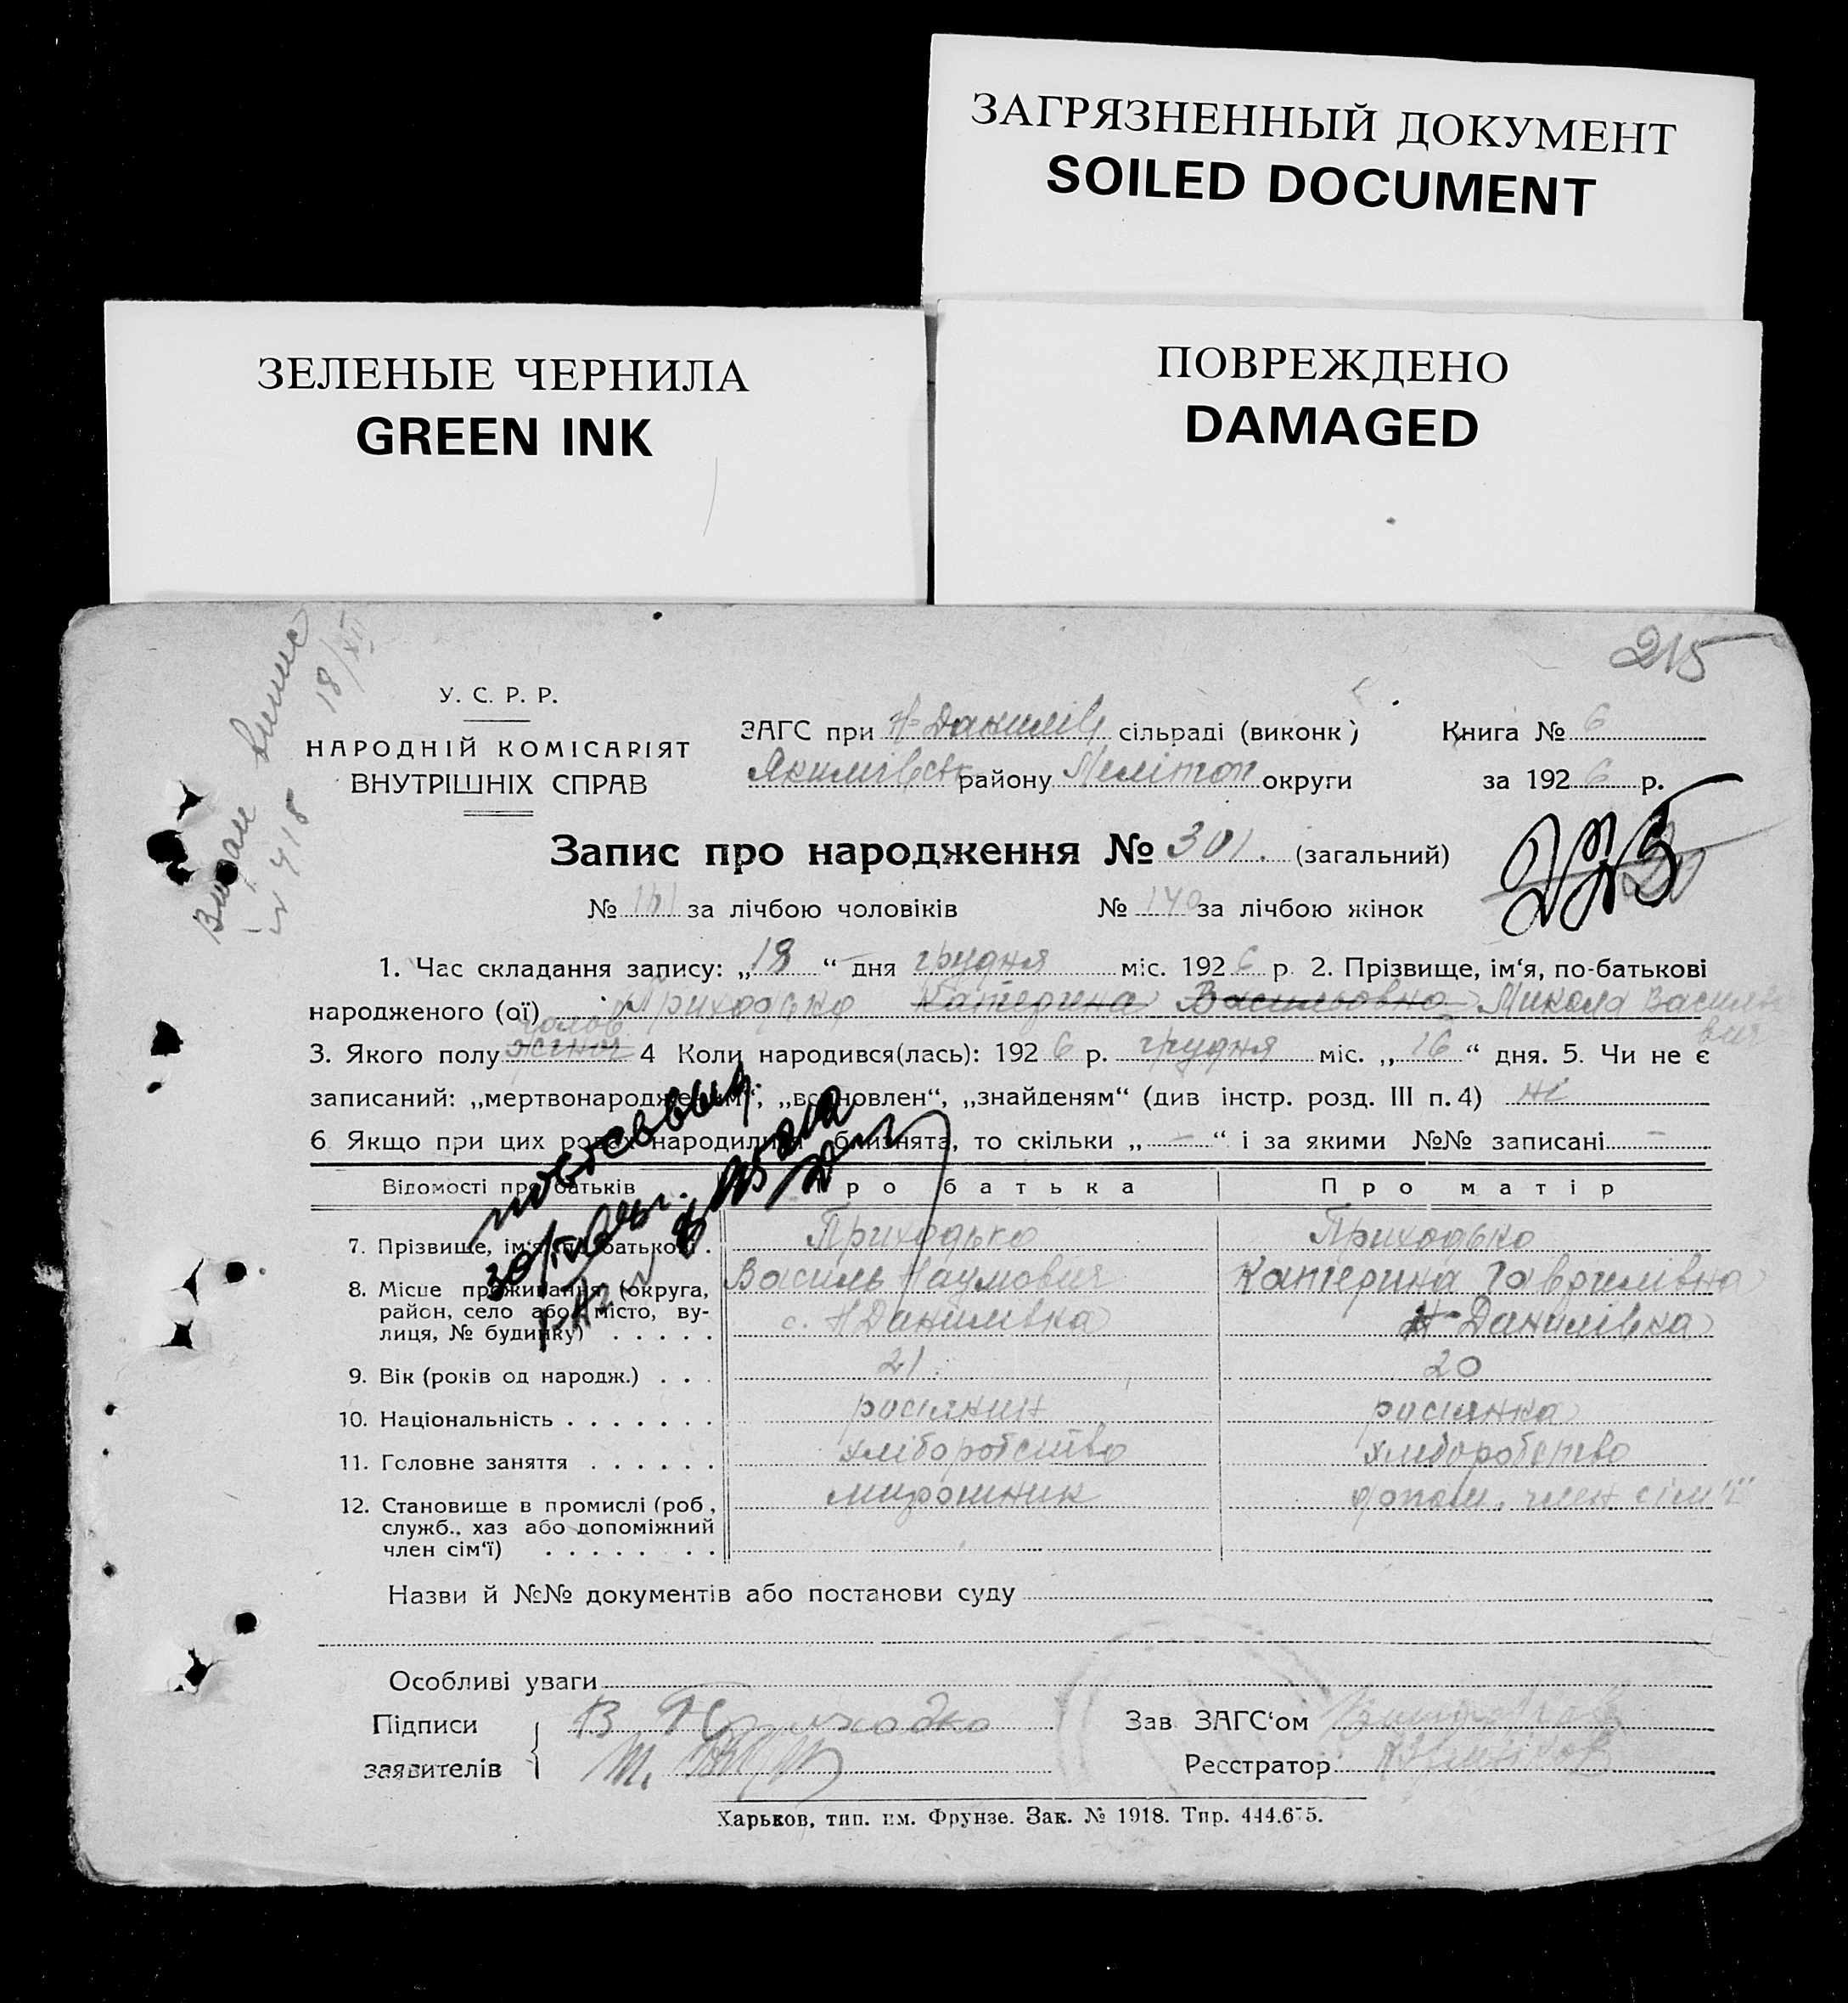 ЗАГРЯЗНЕННЫЙ ДОКУМЕНТ
SOILED DOCUMENT
ЗЕЛЕНЫЕ ЧЕРНИЛА
GREEN INK
ПОВРЕЖДЕНО
DAMAGED
215
18/XII
У. С. Р. Р.
НАРОДНІЙ КОМІСАРІЯТ
ВНУТРІШНІХ СПРАВ
ЗАГС при Н-Данилів сільраді (виконк) Книга № 6
Якимівськ району Мелітоп округи за 1926 р.
Запис про народження № 301. (загальний)
№ 161 за лічбою чоловіків № 140 за лічбою жінок
1. Час складання запису: „18“ дня грудня міс. 1926 р. 2. Прізвище, ім‘я, по-батькові
народженого (ої) Приходько Катерина Васильовна Микола Василь
вич
чолов
3. Якого полу жіноч 4 Коли народився(лась): 1926 р. грудня міс. „16“ дня. 5. Чи не є
записаний: „мертвонародженим“, „встановлен“, „знайденям“ (див інстр. розд. III п. 4) ні
6 Якщо при цих родах народились близнята, то скільки „-“ і за якими №№ записані -
Відомості про батьків Про батька Про матір
7. Прізвище, ім‘я, по-батькові . Приходько Приходько
Василь Наумович Катерина Гаврилівна
8. Місце проживання (округа, район, село або місто, вулиця, № будинку) с. Н Данилівка Н-Данилівка
9. Вік (років од народж.) . . . 21 20
10. Національність . . . . . . . росіянин росіянка
11. Головне заняття . . . . . . хліборобство хліборобство
12. Становище в промислі (роб, служб., хаз або допоміжний член сім‘ї) мирошник допом. член сім'ї
Назви й №№ документів або постанови суду
Особливі уваги
Підписи В Приходко Зав ЗАГС‘ом
заявителів Реєстратор
Харьков, тип. им. Фрунзе. Зак. № 1918. Тир. 444.675.